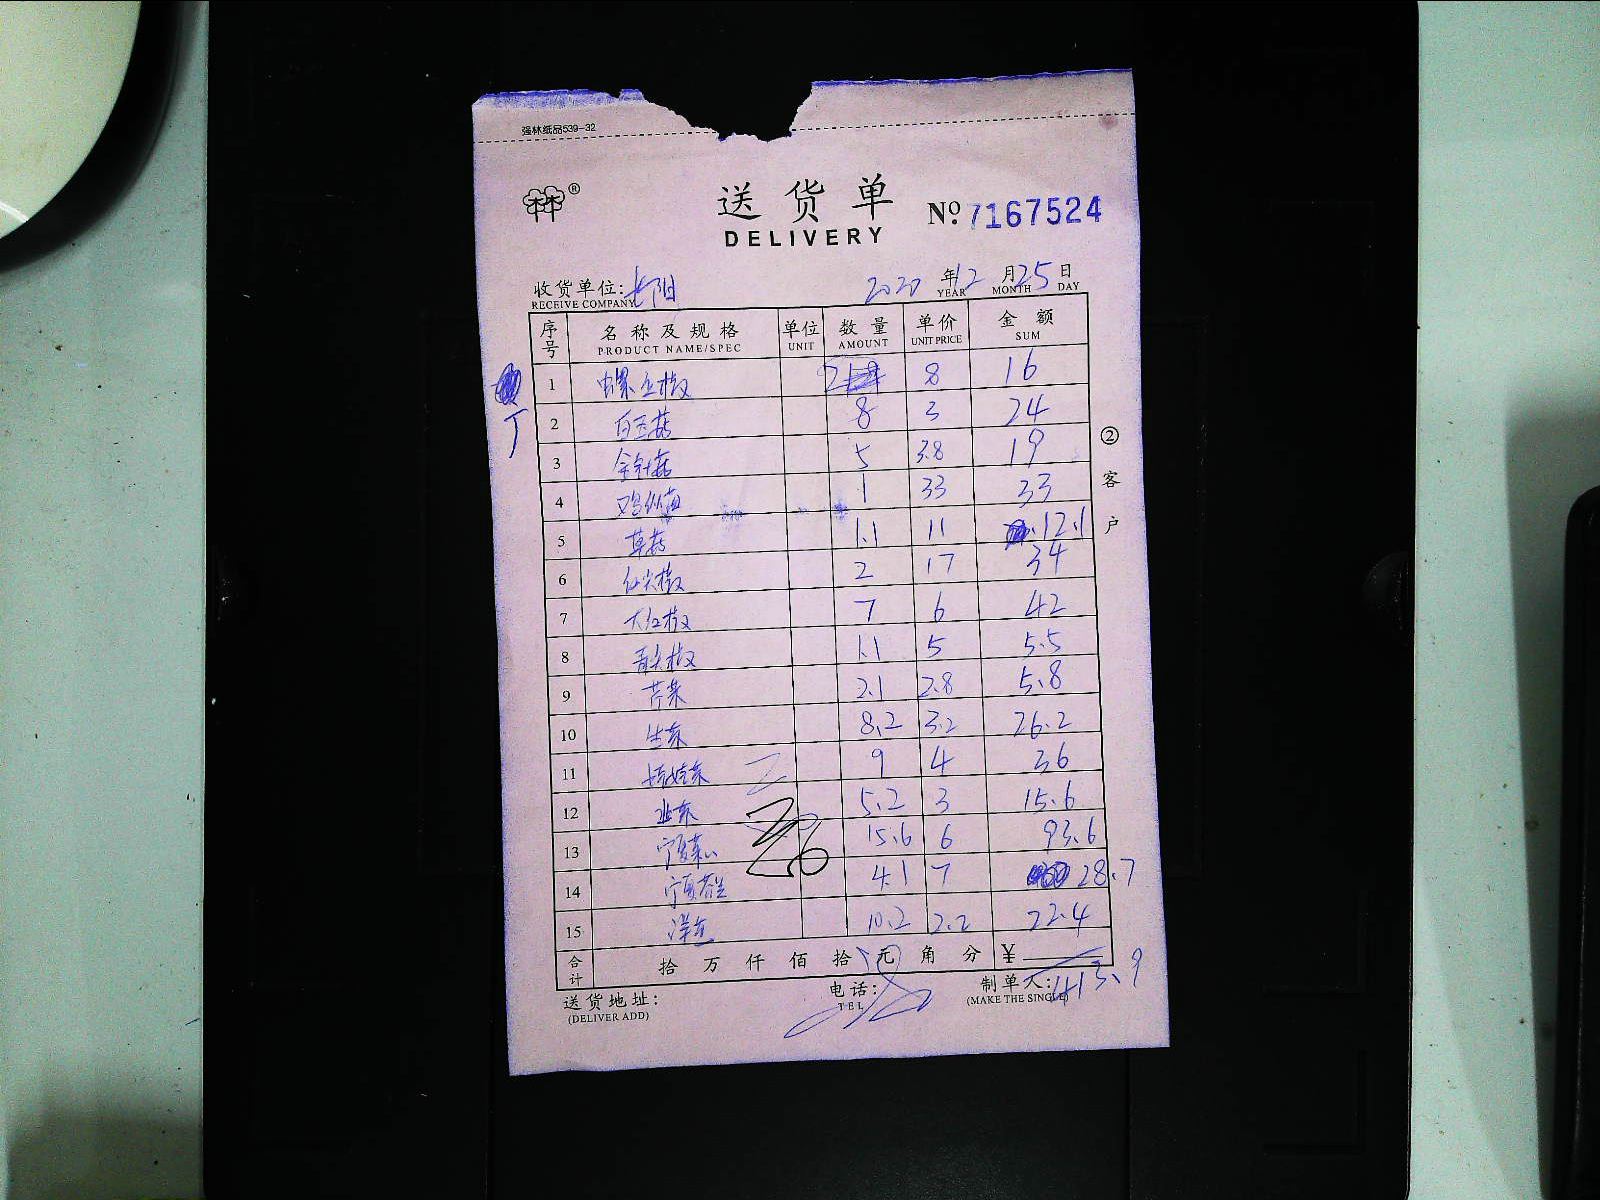 强林纸品539-32
®
送货单
№ 7167524
DELIVERY
收货单位: 长阳 2020 年 12 月 25 日
RECEIVE COMPANY YEAR MONTH DAY
序号 名称及规格 单位 数量 单价 金额
PRODUCT NAME/SPEC UNIT AMOUNT UNIT PRICE SUM
1 螺丝椒 2 8 16
2 白玉菇 8 3 24
3 金针菇 5 3.8 19
4 鸡纵菌 1 33 33
5 草菇 1.1 11 12.1
6 红尖椒 2 17 34
7 大红椒 7 6 42
8 青尖椒 1.1 5 5.5
9 芹菜 2.1 2.8 5.8
10 生菜 8.2 3.2 26.2
11 娃娃菜 9 4 36
12 韭菜 5.2 3 15.6
13 宁夏菜心 15.6 6 93.6
14 宁夏芥兰 4.1 7 28.7
15 洋葱 10.2 2.2 22.4
合计 拾 万 仟 佰 拾 元 角 分 ¥ 413.9
送货地址: 电话: 制单人:
(DELIVER ADD) TEL (MAKE THE SINGLE)
②客户